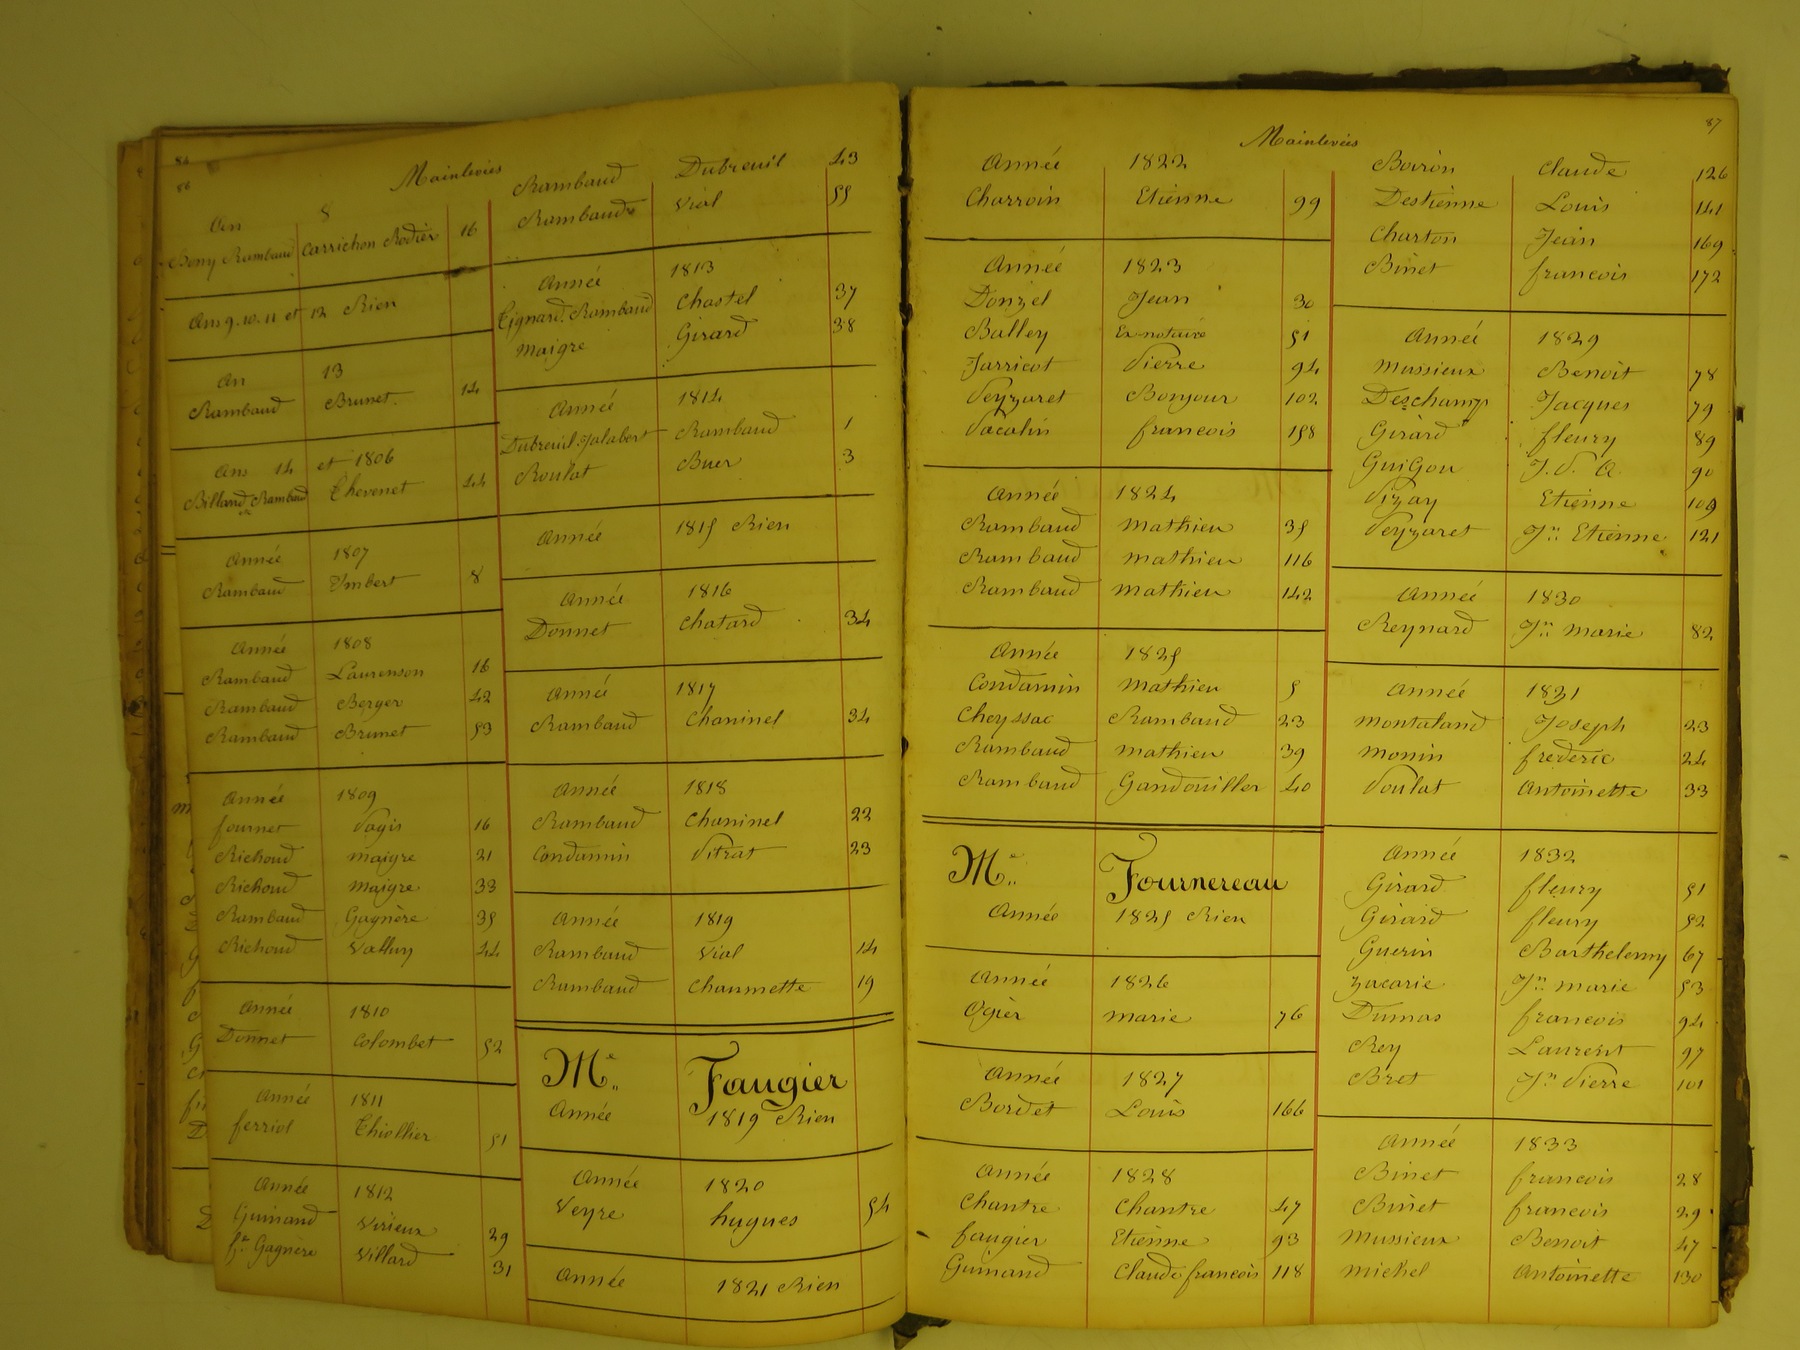 86
Mainlevées
An 8
Bony Rambaud Carrichon Rodier 16
Ans 9. 10. 11 et 12 Rien
An 13
Rambaud Brunet 14
Ans 14 et 1806
Billand Rambaud Thevenet 44
Année 1807
Rambaud Imbert 8
Année 1808
Rambaud Laurenson 16
Rambaud Berger 42
Rambaud Brunet 53
Année 1809
fournet Pagis 16
Richoud maigre 21
Richoud maigre 33
Rambaud Gagnère 35
Richoud Valluy 44
Année 1810
Donnet Colombet 52
Année 1811
ferriol Thiollier 51
Année 1812
Guinand Virieux 29
Gagnère Villard 31
Rambaud Dubreuil 43
Rambaud Vial 55
Année 1813
Tignard. Rambaud Chastel 37
Maigre Girard 38
Année 1814
Dubreuil. Jalabert Rambaud 1
Roulat Buer 3
Année 1815 Rien
Année 1816
Donnet Chatard 34
Année 1817
Rambaud Chaninel 34
Année 1818
Rambaud Chaninel 22
Condamin Vitrat 23
Année 1819
Rambaud Vial 14
Rambaud Chaumette 19
Me Faugier
Année 1819 Rien
Année 1820
Veyre hugues 54
Année 1821 Rien
87
Mainlevées
Année 1822
Charroin Etienne 99
Année 1823
Donzel Jean 30
Balley Ex-notaire 51
Jarricot Pierre 94
Peyzaret Bonjour 102
Pacalin francois 158
Année 1824
Rambaud mathieu 35
Rambaud mathieu 116
Rambaud mathieu 142
Année 1825
Condamin mathieu 5
Cheyssac Rambaud 23
Rambaud mathieu 39
Rambaud Gandouiller 40
Me Fournereau
Année 1825 Rien
Année 1826
Ogier marie 76
Année 1827
Bordet Louis 166
Année 1828
Chantre Chantre 47
faugier Etienne 93
Guinand Claude francois 118
Boiron Claude 126
Destienne Louis 141
Charton Jean 169
Binet francois 172
Année 1829
Mussieux Benoit 78
Deschamps Jacques 79
Girard fleury 89
Guigou J. P. A. 90
Pizay Etienne 109
Peyzaret Jn Etienne 121
Année 1830
Reynard Jn marie 82
Année 1831
montaland Joseph 23
monin frederic 24
Poulat Antoinette 33
Année 1832
Girard fleury 51
Girard fleury 52
Guerin Barthelemy 67
zacarie Jn marie 53
Dumas francois 94
Rey Laurent 97
Bret Jn Pierre 101
Année 1833
Binet francois 28
Binet francois 29
Mussieux Benoit 47
michel Antoinette 130